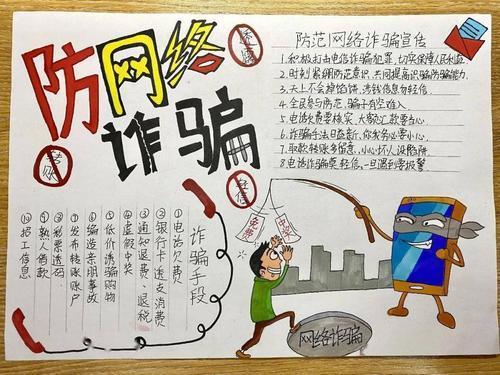 防网络
诈骗
防范网络诈骗宣传
1.积极打击电信诈骗犯罪,切实保障人民利益
2.时刻紧绷防范意识,共同提高识骗防骗能力
3.天上不会掉馅饼,涉钱信息勿轻信
4.全民参与防范,骗子有空难入
5.电话欠费要核实,大额汇款要当心
6.诈骗手法日益新,你我务必要小心
7.取款转账多留意,小心坏人设陷阱
8.电话诈骗莫轻信,一旦遇到要报警
轻信
诈骗手段
①电话欠费
②银行卡透支消费
③通知退费、退税
④虚假中奖
⑤低价诱骗购物
⑥编造亲朋事故
⑦发布转账账户
⑧彩票透码
⑨熟人借款
⑩招工信息
免费
中奖
网络诈骗